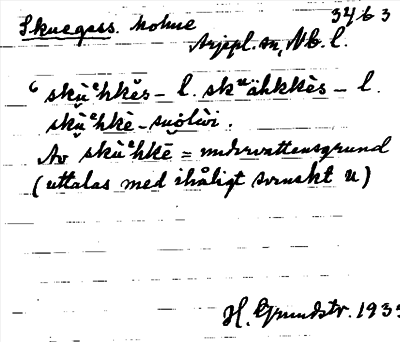 Skuegess. holme 34 b 3
Arjepl. sn, Nb. l.
skùᵉhkĕs – l. skᵘähkkès – l.
skùᵉhkè – suòlùi.
Av skùᵉhkē = undervattensgrund
(uttalas med ihåligt svenskt u)
H. Grundstr. 193